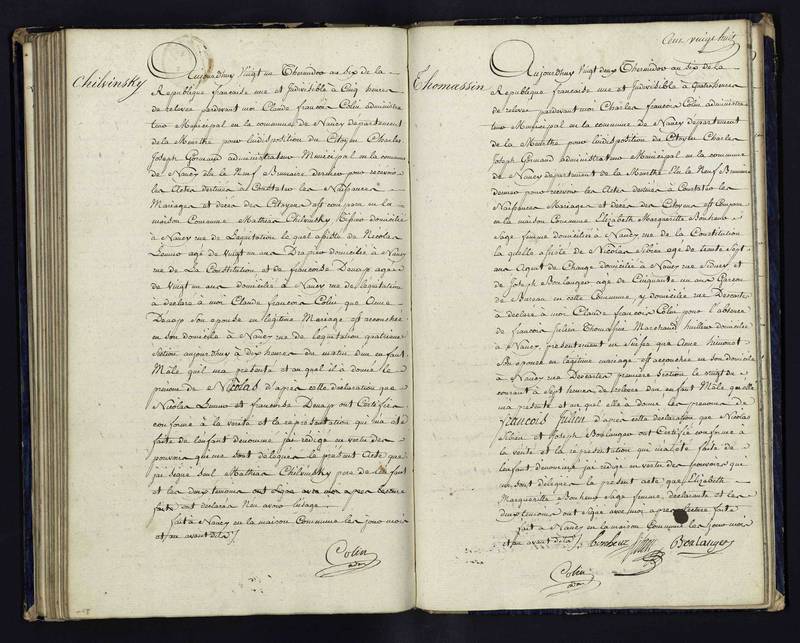 Chilvinsky
Aujourdhuy Vingt un Thermidor an Six de la
Republique francaise une et Indivisible à Cinq heures
de relevée pardevant moi Claude francois Colin administra
teur Municipal en la commune de Nancy departement
de la Meurthe pour lindisposition du Citoyen Charles
Joseph administrateur Municipal en la commune
de Nancy Elu le Neuf Brumaire dernier pour recevoir
les Actes destinés à Constater les Naissances
Mariages et décès des Citoyens est comparu en la
maison Commune Mathias Chilvinsky domicilié
à Nancy rue de Legalitation le quel assisté de Nicolas
agé de Vingt un ans domicilié à Nancy
rue de La Constitution et de francoise agée
de Vingt un ans domiciliée à Nancy rue de
à déclaré à moi Claude francois Colin que Anne
son epouse en légitime Mariage est accouchée
en son domicile à Nancy rue de quatrième
Section aujourdhuy à dix heures du matin dun enfant
Mâle quil ma presenté et au quel il a donné le
prenom de Nicolas d'après cette déclaration que
Nicolas et francoise ont Certifié
conforme à la verité et la représentation qui ma été
faite de lenfant denommé j'ai rédigé en vertu des
pouvoirs qui me sont délégués le présent Acte que
j'ai signé seul Mathias Chilvinsky pere de lenfant
et les deux témoins ont
faite ont déclaré Nen avoir lusage
fait à Nancy en la maison Commune les jour mois
et an avant dits
Colin
Cent vingt huit
Thomassin
Aujourdhuy Vingt deux Thermidor an Six de la
Republique francaise une et Indivisible à Quatre heures
de relevée pardevant moi Charles francois Colin administra
teur Municipal en la commune de Nancy departement
de la Meurthe pour lindisposition du Citoyen Charles
Joseph administrateur Municipal en la commune
de Nancy departement de la Meurthe Elu le Neuf Brumaire
dernier pour recevoir les Actes destinés à Constater les
Naissances Mariages et décès des Citoyens est Comparu
en la maison Commune Elizabeth Margueritte Bonheur
Sage femme domiciliée à Nancy rue de la Constitution
la quelle assistée de Nicolas agé de trente Sept
ans Agent de Change domicilié à Nancy rue Sidney et
de Joseph Boulanger agé de Cinquante un ans Garcon
de Bureau en cette Commune y domicilié rue Descartes
à déclaré à moi Claude francois Colin pour l'absence
de francois Julien Thomassin Marchand domicilié
à Nancy, presentement en Suisse que Anne
Son epouse en légitime mariage est accouchée en son domicile
à Nancy rue Descartes première Section le vingt du
courant à Sept heures de relevée dun enfant Mâle quelle
ma présenté et au quel elle a donné les prenoms de
francois Julien d'après cette déclaration que Nicolas
et Joseph Boulanger ont Certifié conforme à
la verité et la représentation qui ma été faite de
lenfant denommé j'ai rédigé en vertu des pouvoirs qui
me sont délégués le présent acte que Elizabeth
Marguerite Bonheur Sage femme, déclarante et les
deux témoins ont signé avec moi après lecture faite
fait à Nancy en la maison Commune les jour mois
et an avant dits bonheur Boulanger
Colin